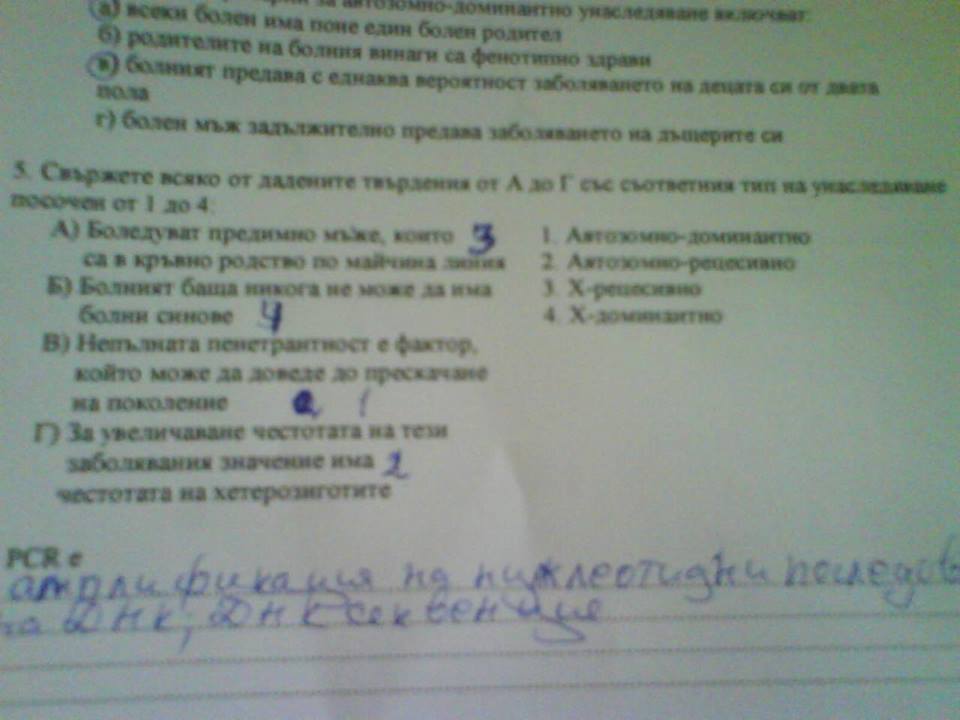 за автозомно-доминантно унаследяване включват:
а) всеки болен има поне един болен родител
б) родителите на болния винаги са фенотипно здрави
в) болният предава с еднаква вероятност заболяването на децата си от двата
пола
г) болен мъж задължително предава заболяването на дъщерите си
5. Свържете всяко от дадените твърдения от А до Г със съответния тип на унаследяване
посочен от 1 до 4:
А) Боледуват предимно мъже, които 3
са в кръвно родство по майчина линия
Б) Болният баща никога не може да има
болни синове 4
В) Непълната пенетрантност е фактор,
който може да доведе до прескачане
на поколение
Г) За увеличаване честотата на тези
заболявания значение има 2
честотата на хетерозиготите
1. Автозомно-доминантно
2. Автозомно-рецесивно
3. Х-рецесивно
4. Х-доминантно
PCR е
амплификация на нуклеотидни последов
на ДНК; ДНК секвенция